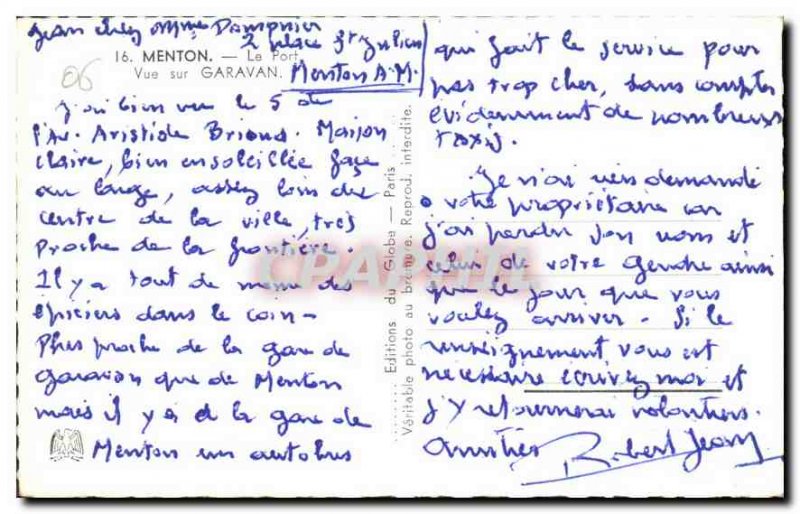 Jean chez Mme Dampnier
2 place St Julien
Menton A.M.
16. MENTON. — Le Port
Vue sur GARAVAN.
06
J'ai bien vu le 5 de
l'Av. Aristide Briand. Maison
claire, bien ensoleillée face
au large, assez loin du
centre de la ville, très
proche de la frontière.
Il y a tout de même des
épiciers dans le coin —
Plus proche de la gare de
Garavan que de Menton
mais il y a à la gare de
Menton un autobus
Editions du Globe — Paris
Véritable photo au bromure. Reprod. interdite.
qui fait le service pour
pas trop cher, sans compter
évidemment de nombreux
taxis.
Je n'ai rien demandé
à votre propriétaire car
j'ai perdu son nom et
celui de votre gendre ainsi
que le jour que vous
voulez arriver. Si le
renseignement vous est
nécessaire écrivez moi et
j'y retournerai volontiers.
Amitiés Robert Jean
CPARAMA